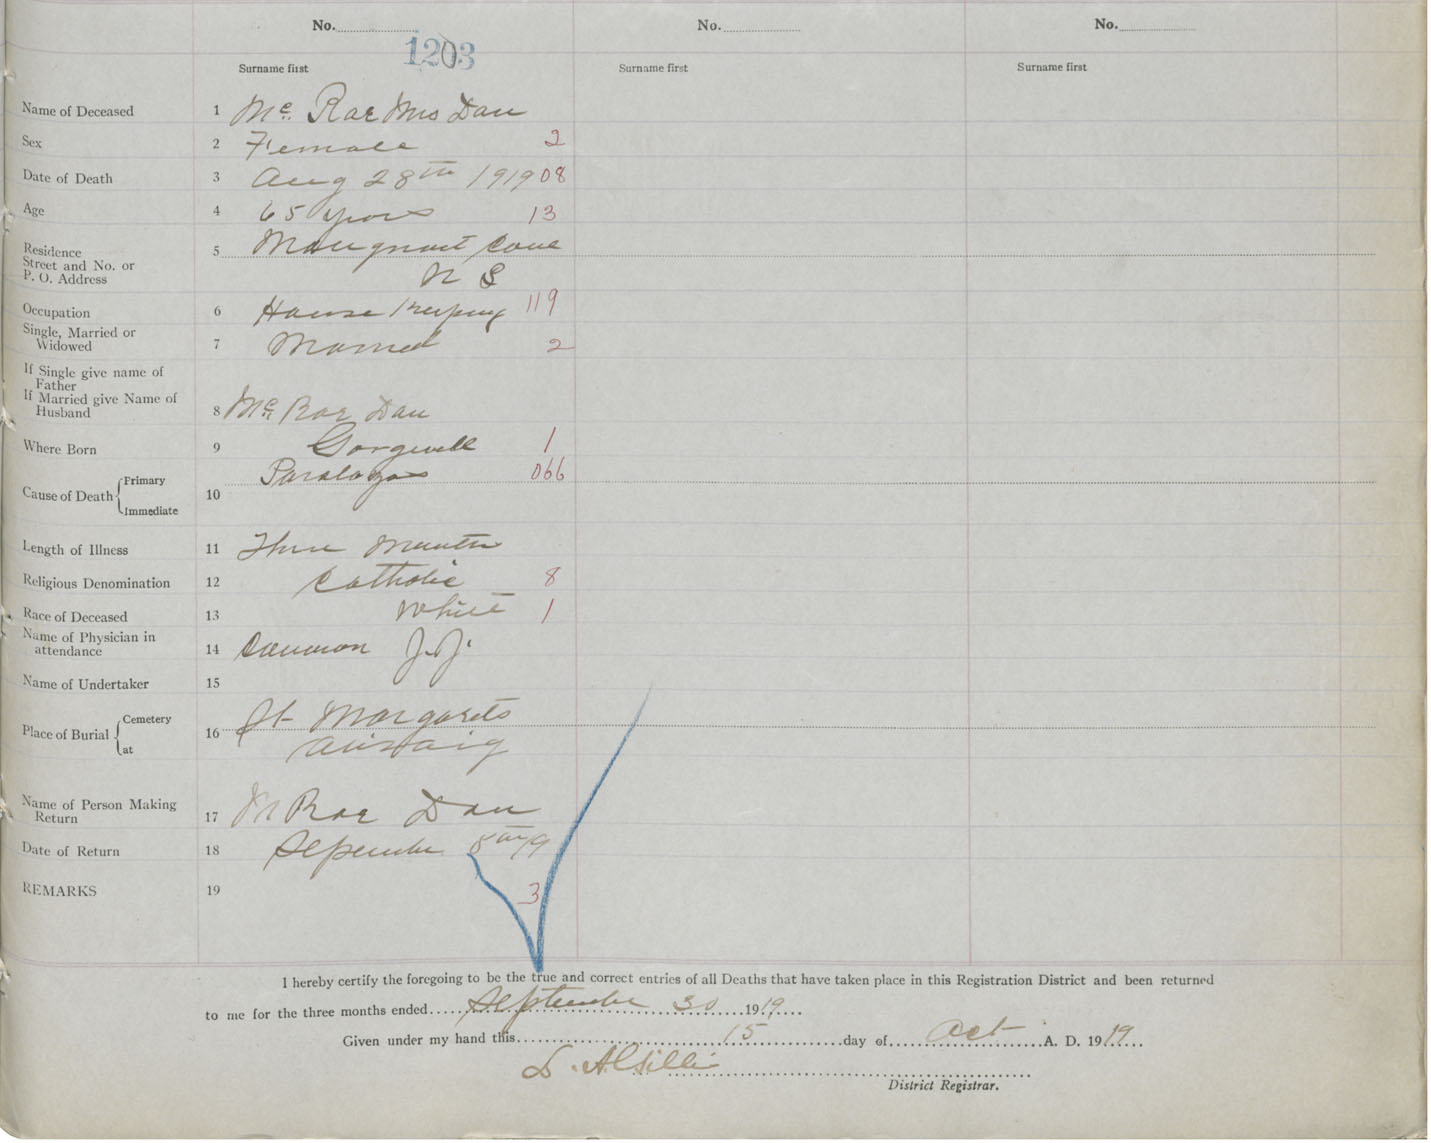 No. No. No.
1203
Surname first Surname first Surname first
Name of Deceased 1 Mc. Rae Mrs Dan
Sex 2 Female 2
Date of Death 3 Aug 28th 1919 08
Age 4 65 years 13
Residence
Street and No. or
P. O. Address 5 Malignant Cove
N S
Occupation 6 House Keeping 119
Single, Married or
Widowed 7 Married 2
If Single give name of
Father
If Married give Name of
Husband 8 Mc. Rae Dan
Where Born 9 1
Cause of Death Primary 066
Immediate 10
Length of Illness 11 Three Months
Religious Denomination 12 Catholic 8
Race of Deceased 13 White 1
Name of Physician in
attendance 14 Cameron J. J.
Name of Undertaker 15
Place of Burial Cemetery 16 St Margarets
at Arisaig
Name of Person Making
Return 17 Mc Rae Dan
Date of Return 18 19
REMARKS 19 3
I hereby certify the foregoing to be the true and correct entries of all Deaths that have taken place in this Registration District and been returned
to me for the three months ended September 30 1919
Given under my hand this 15 day of Oct A. D. 1919
District Registrar.